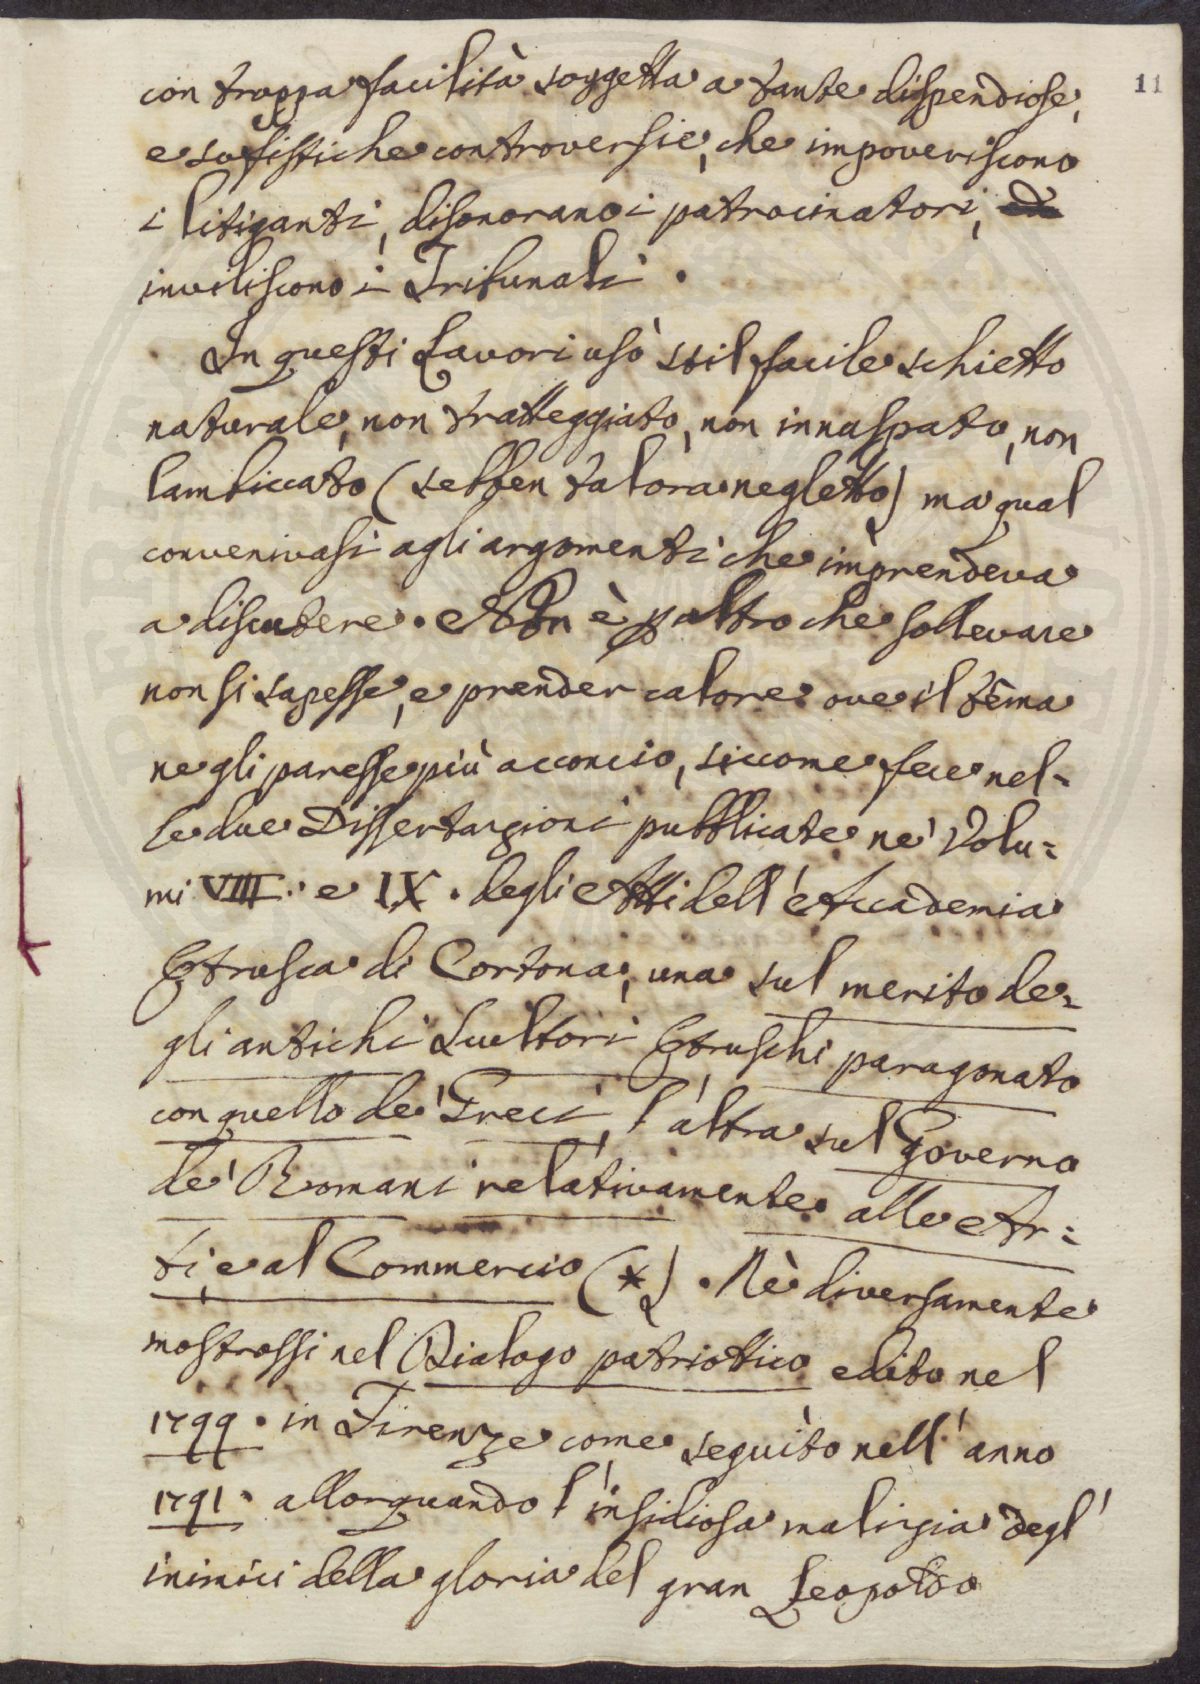 11
con troppa facilità soggetta a tante dispendiose,
e sofistiche controversie, che impoveriscono
i litiganti, disonorano i patrocinatori,
inviliscono i Tribunali.
In questi Lavori usò stil facile schietto
naturale, non tratteggiato, non innaspato, non
lambiccato (sebben talora negletto) ma qual
convenivasi agli argomenti che imprendeva
a discutere. Non è p altro che sollevare
non si sapesse, e prender calore ove il tema
ne gli paresse più acconcio, siccome fece nel=
le due Dissertazioni pubblicate ne' Volu=
mi VIII. e IX. degli Atti dell'Accademia
Etrusca di Cortona, una sul merito de=
gli antichi Scultori Etruschi paragonato
con quello de' Greci, l'altra sul Governo
de' Romani relativamente alle Ar=
ti, e al Commercio (*). Nè diversamente
mostrossi nel Dialogo patriottico edito nel
1799. in Firenze come seguìto nell'anno
1791. allorquando l'insidiosa malizia degl'
inimici della gloria del gran Leopoldo